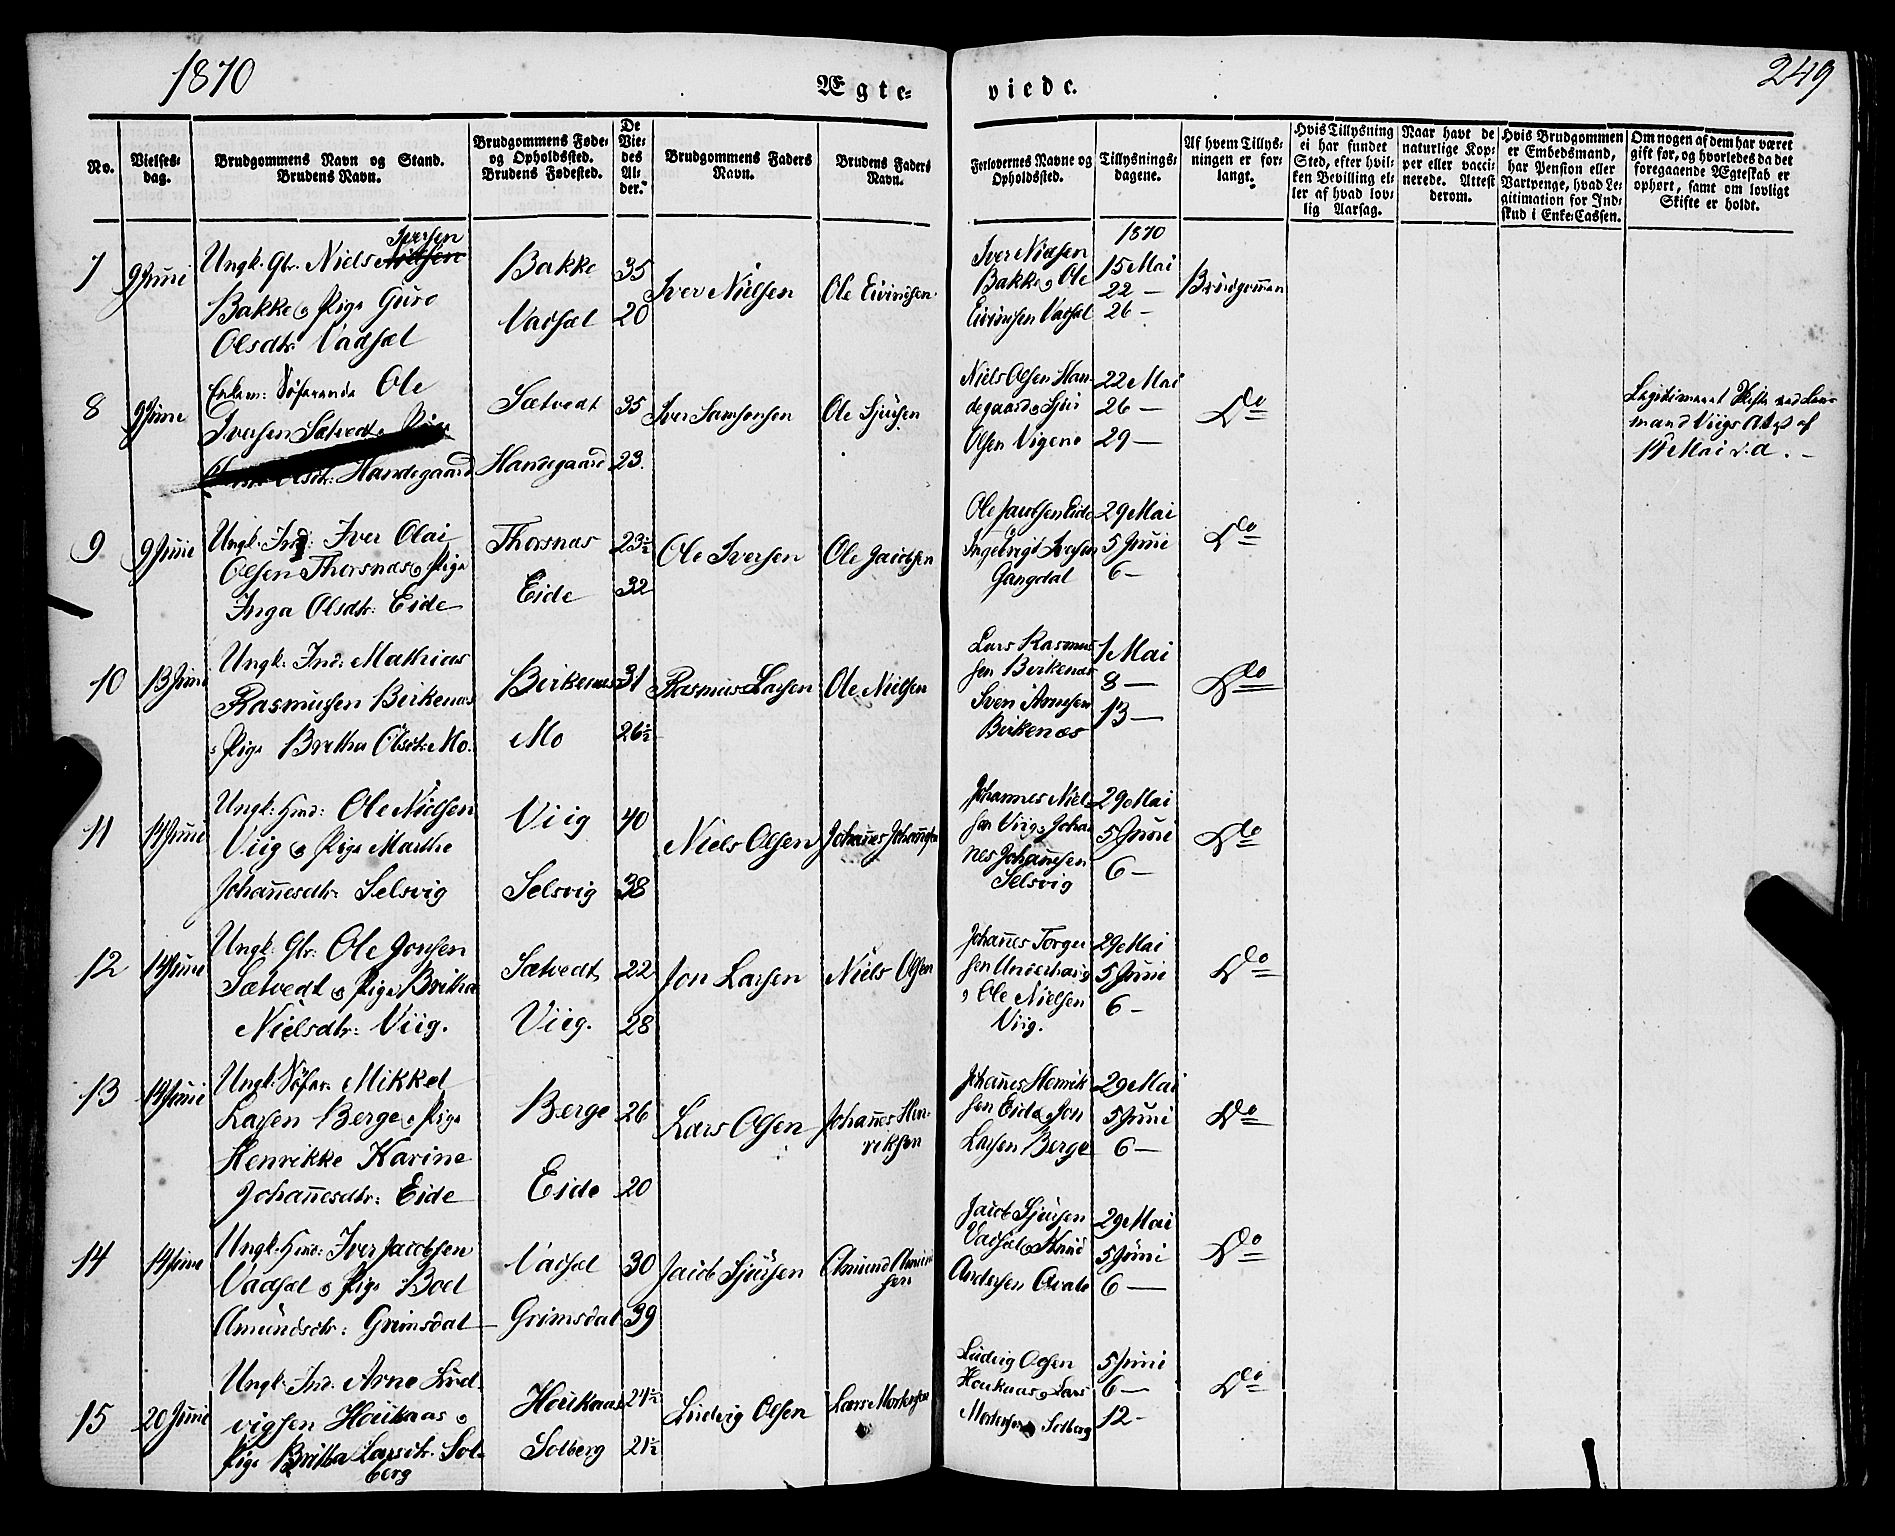 1870
Ægte-
viede.
249
No.
Vielses-
dag.
Brudgommens Navn og Stand.
Brudens Navn.
Brudgommens Føde-
og Opholdssted.
Brudens Fødested.
De
Vie-
des
Al-
der.
Brudgommens Faders
Navn.
Brudens Faders
Navn.
Forlovernes Navne og
Opholdssted.
Tillysnings-
dagene.
Af hvem Tillys-
ningen er for-
langt.
Hvis Tillysning
ei har fundet
Sted, efter hvil-
ken Bevilling el-
ler af hvad lov-
lig Aarsag.
Naar havt de
naturlige Kop-
per eller vacci-
nerede. Attest
derom.
Hvis Brudgommen
er Embedsmand,
har Pension eller
Vartpenge, hvad Le-
gitimation for Ind-
skud i Enke-Cassen.
Om nogen af dem har været
gift før, og hvorledes da det
foregaaende Ægteskab er
ophørt, samt om lovligt
Skifte er holdt.
7
9 Juni
Iversen
Ungk. Gbr. Niels Nielsen
Bakke og Pige Guro
Olsdtr. Vadsel
Bakke
Vadsel
35
20
Iver Nielsen
Ole Eivindsen
Iver Nielsen
Bakke og Ole
Eivindsen Vadsel
1870
15 Mai
22 —
26 —
Brudgommen
8
9 Juni
Enkem: Søfarende Ole
Iversen Sætvedt og Pige
Olsdtr: Handegaard
Sætvedt
Handegaard
35
23.
Iver Samsonsen
Ole Sjursen
Niels Olsen Han-
degaard og Sjur
Olsen Vigene
22 Mai
26 —
29 —
Do
Legitimeret Skifte ved Lens-
mand Viigs Attest af
14 Mai d.a. —
9
9 Juni
Ungk. Ind: Iver Olai
Olsen Thorsnæs og Pige
Inga Olsdtr: Eide
Thorsnæs
Eide
23½
32
Ole Iversen
Ole Jacobsen
Ole Jacobsen Eide
Ingebrigt Iversen
Gangdal
29 Mai
5 Juni
6 —
Do
10
13 Juni
Ungk: Ind: Mathias
Rasmussen Birkenæs
og Pige Britha Olsdtr: Mo.
Birkenæs
Mo
31
26½
Rasmus Larsen
Ole Nielsen
Lars Rasmus-
sen Birkenæs
Sven Arnesen
Birkenæs
1 Mai
8 —
13 —
Do
11
14 Juni
Ungk: Hmd: Ole Nielsen
Viig og Pige Marthe
Johannesdtr: Selsvig
Viig
Selsvig
40
38
Niels Olsen
Johannes Johannesen
Johannes Niel-
sen Viig og Johan-
nes Johannesen
Selsvig
29 Mai
5 Juni
6 —
Do
12
14 Juni
Ungk: Gbr: Ole Jonsen
Sætvedt og Pige Britha
Nielsdtr: Viig.
Sætvedt
Viig.
22
28
Jon Larsen
Niels Olsen
Johannes Torger-
sen Underhaug
og Ole Nielsen
Viig.
29 Mai
5 Juni
6 —
Do
13
14 Juni
Ungk: Søfar: Mikkel
Larsen Berge og Pige
Henrikke Karine
Johannesdtr: Eide
Berge
Eide
26
20
Lars Olsen
Johannes Hen-
riksen
Johannes Henrik-
sen Eide og Jon
Larsen Berge
29 Mai
5 Juni
6 —
Do
14
14 Juni
Ungk: Hmd: Iver Jacobsen
Vadsel og Pige Boel
Amundsdtr: Grimsdal
Vadsel
Grimsdal
30
39
Jacob Sjursen
Amund Amund-
sen
Jacob Sjursen
Vadsel og Knud
Andersen Qvale
29 Mai
5 Juni
6 —
Do
15
20 Juni
Ungk: Ind. Arne Lud-
vigsen Houkaas og
Pige Britha Larsdtr. Sol-
berg
Houkaas
Solberg
24½
21½
Ludvig Olsen
Lars Mortensen
Ludvig Olsen
Houkaas og Lars
Mortensen Solberg
5 Juni
6 —
12 -
Do